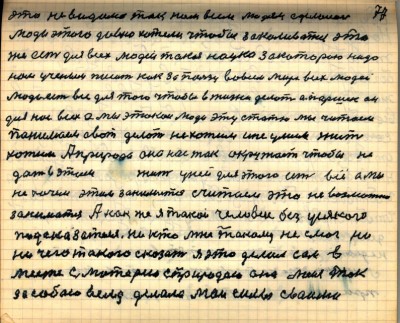 это невидано так нам всем людям сделали 77
люди этого давно хотели чтобы заниматся это
же сит для всех людей такая наука за которою надо
нам ученым писать как за палцу в всем мире всех людей
люди сит все для того чтобы в жизни делат а
для нас всех а мы этакои люди эту статю мы читаем
панимаем свой делат не хотим и не умием жит
хотим А природа она нас так окружает чтобы не
дат в этом жит у ней для этого сит всё а мы
не хочем этим заниматся считаем это не возможно
заниматся А как же я такой человек без усякого
подсказателя. ни кто мне такому не смог но
ни чего такого сказат я это делал сам в
месте с, матерю с природаю она моя так
за собаю вела делала маи силы сваими